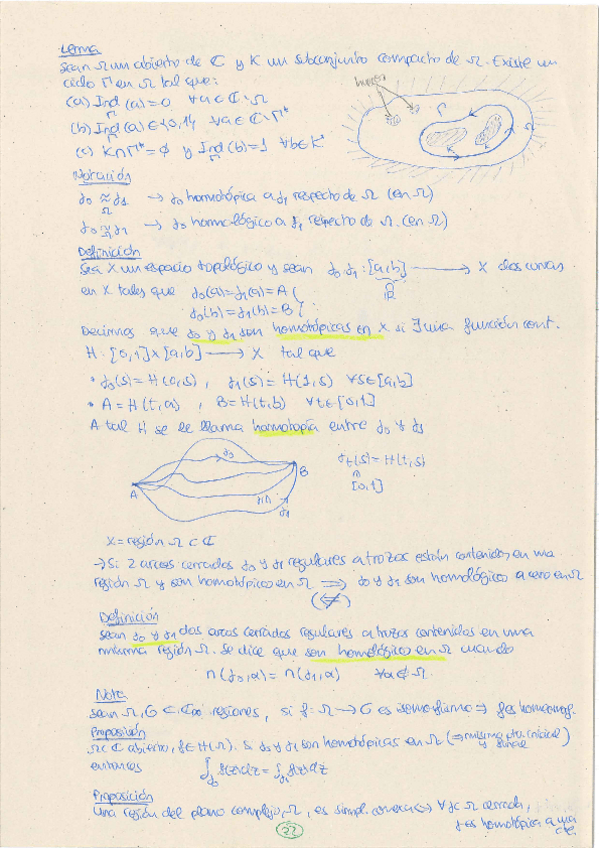 Lema
Sean Ω un abierto de ℂ y K un subconjunto compacto de Ω. Existe un
ciclo Γ en Ω tal que:
(a) Ind_Γ(a)=0 ∀a∈ℂ\Ω
(b) Ind_Γ(a)∈{0,1} ∀a∈ℂ\Γ*
(c) K∩Γ*=∅ y Ind_Γ(b)=1 ∀b∈K
huecos
Γ
Notación
γ₀ ≈_Ω γ₁ → γ₀ homotópica a γ₁ respecto de Ω (en Ω)
γ₀ ~_Ω γ₁ → γ₀ homológico a γ₁ respecto de Ω (en Ω)
Definición
Sea X un espacio topológico y sean γ₀, γ₁ : [a,b] → X dos curvas
ℝ
en X tales que γ₀(a)=γ₁(a)=A
γ₀(b)=γ₁(b)=B
Decimos que γ₀ y γ₁ son homotópicas en X si ∃ una función cont.
H: [0,1]x[a,b] → X tal que
• γ₀(s)=H(0,s), γ₁(s)=H(1,s) ∀s∈[a,b]
• A=H(t,a), B=H(t,b) ∀t∈[0,1]
A tal H se le llama homotopía entre γ₀ y γ₁
γ₀
A
B
γ₁
γt(s)=H(t,s)
[0,1]
X=región Ω⊂ℂ
→ Si 2 arcos cerrados γ₀ y γ₁ regulares a trozos están contenidos en una
región Ω y son homotópicos en Ω ⟹ γ₀ y γ₁ son homológico a cero en Ω
(⇍)
Definición
Sean γ₀ y γ₁ dos arcos cerrados regulares a trozos contenidos en una
misma región Ω. Se dice que son homológicos en Ω cuando
n(γ₀,α) = n(γ₁,α) ∀α∉Ω
Nota
Sean Ω, G ⊂ ℂ∞ regiones, si f: Ω → G es isomorfismo ⟹ f es homeomorf.
Proposición
Ω⊂ℂ abierto, f∈H(Ω). Si γ₀ y γ₁ son homotópicas en Ω (⟹ mismo pto. inicial y final)
entonces ∫_γ₀ f(z)dz = ∫_γ₁ f(z)dz
Proposición
Una región del plano complejo, Ω, es simpl. conexa ⟺ ∀γ⊂Ω cerrada,
γ es homotópica a una
cte.
22